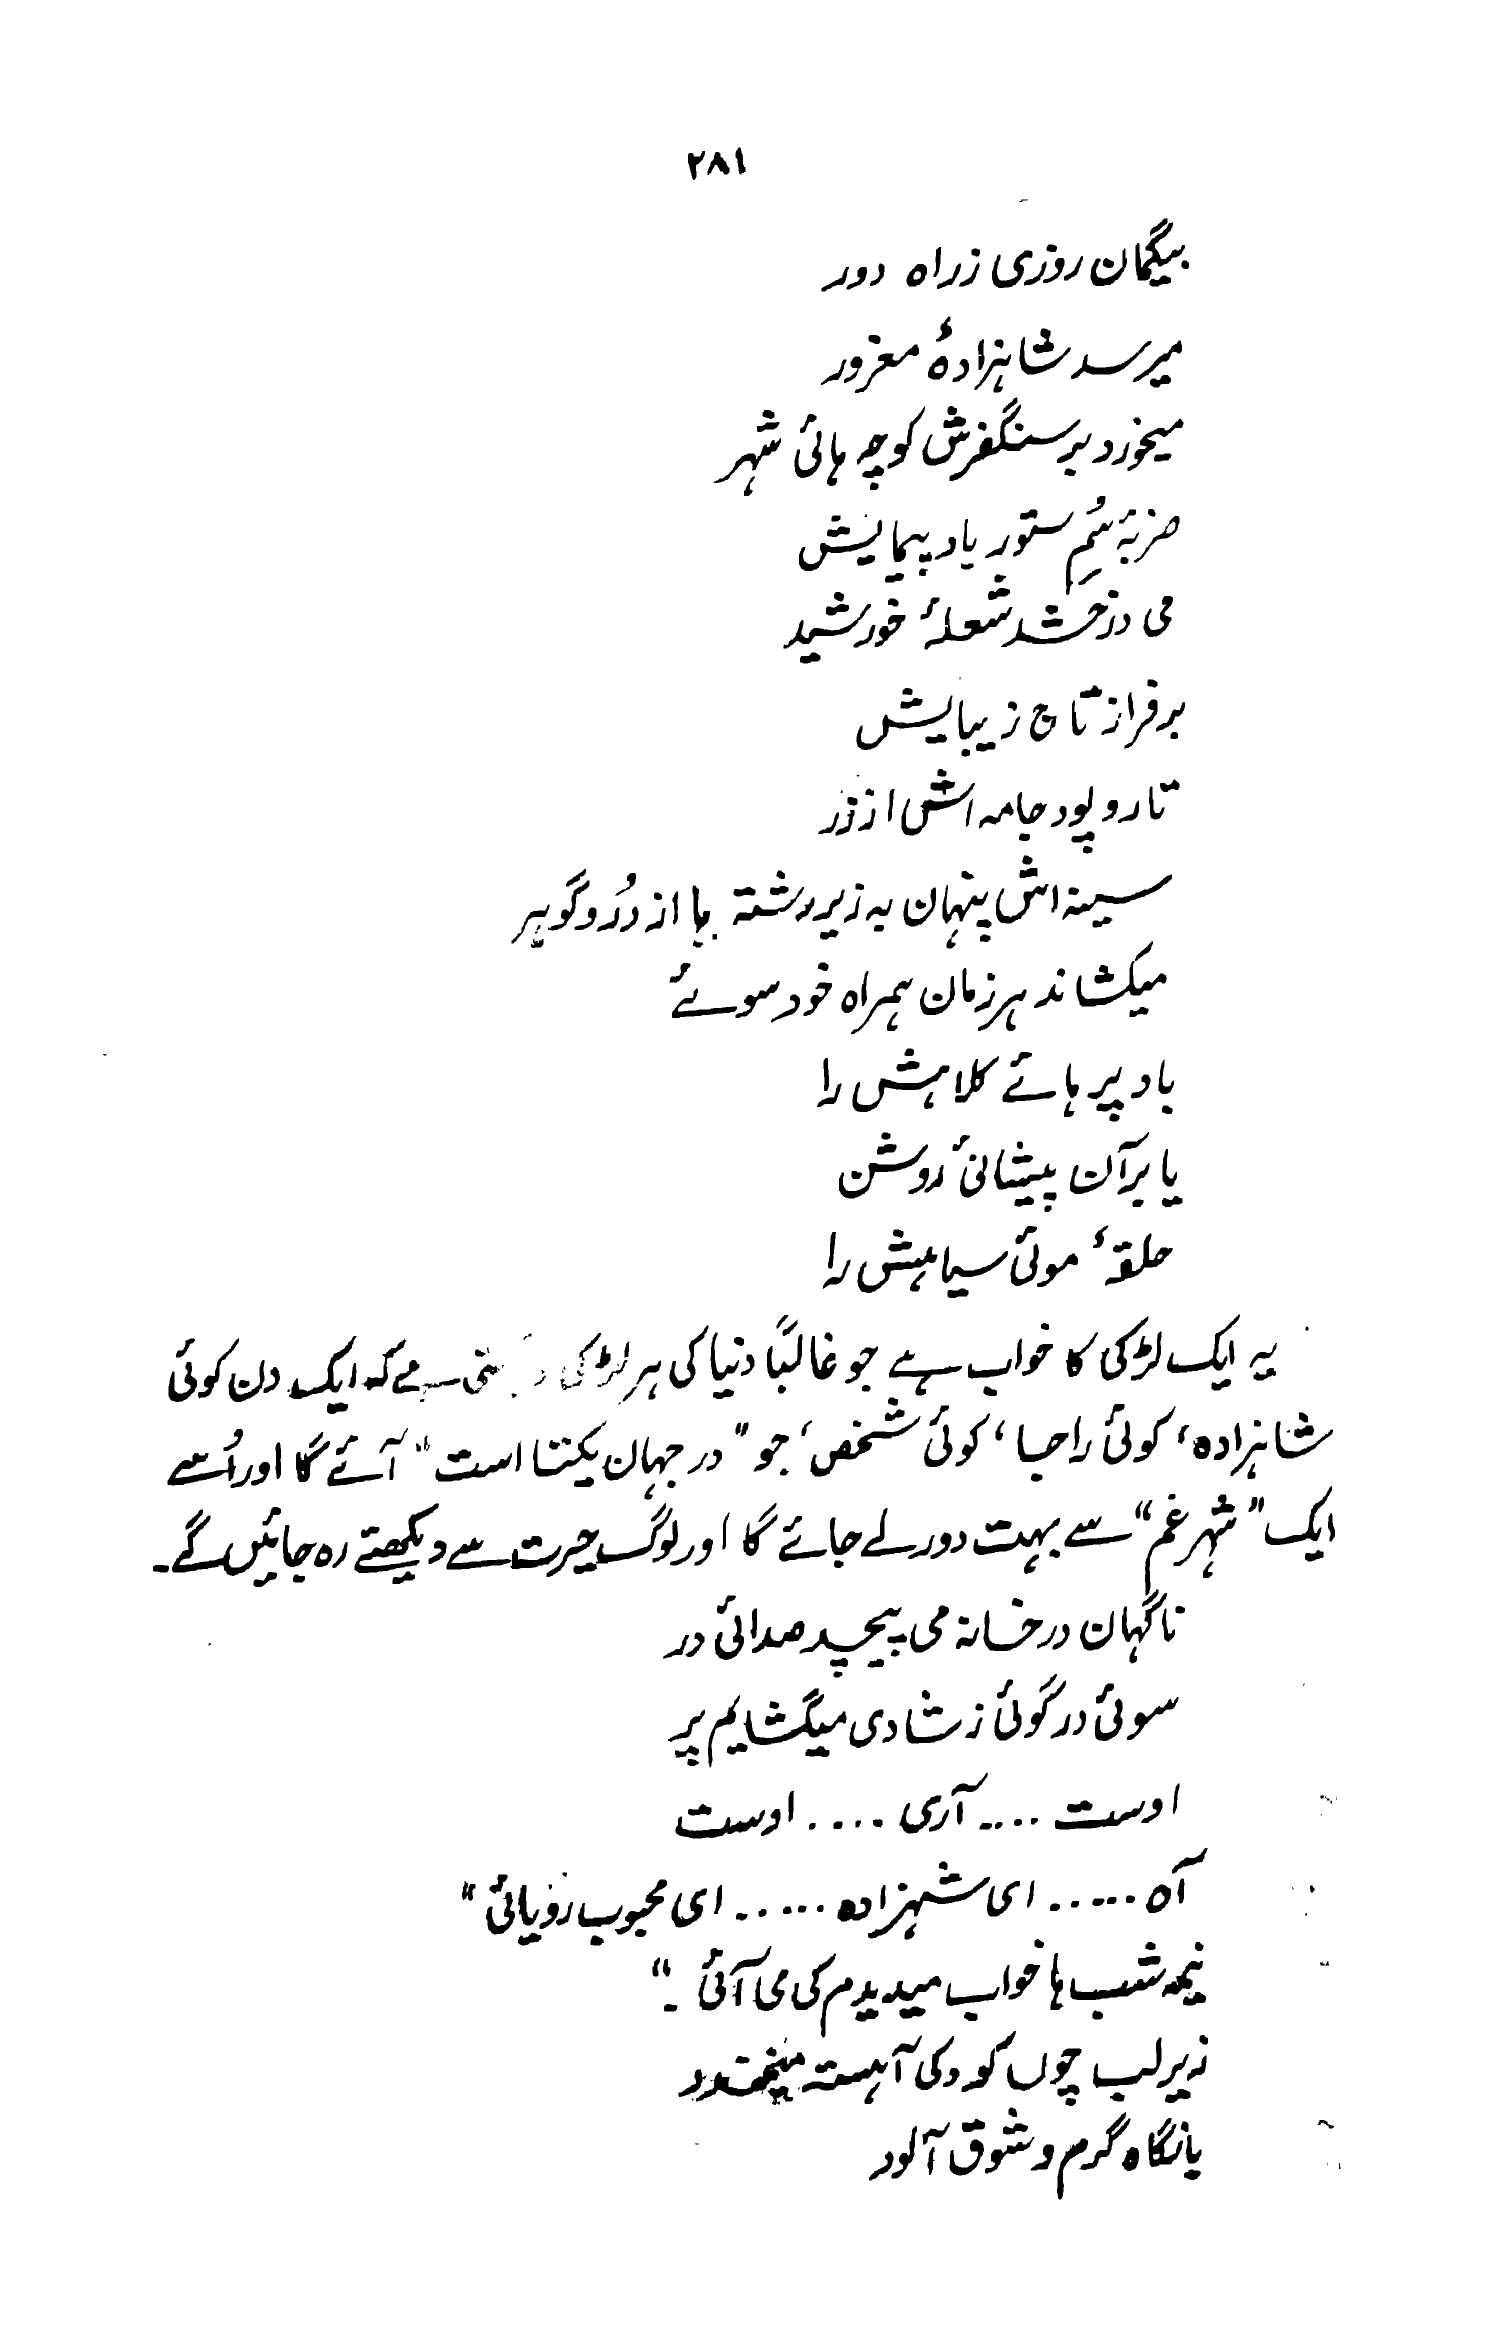 ۲۸۱
بیگمان روزی ز راه دور
میرسد شاہزادۂ مغرور
میخورد بر سنگفرش کوچہ ہائی شہر
ضربۂ سُمِ ستور باد پیمایش
می درخشد شعلۂ خورشید
بر فراز تاج زیبایش
تار و پود جامہ اش از زر
سینہ اش پنہان بہ زیر رشتہ ہا از دُر و گوہر
میکشاند ہر زمان ہمراہ خود سوئے
باد پر ہائے کلاہش را
یا برآن پیشانیٔ روشن
حلقۂ موئی سیاہش را
یہ ایک لڑکی کا خواب ہے جو غالباً دنیا کی ہر لڑکی ہے کہ ایک دن کوئی
شاہزادہ، کوئی راجا، کوئی شخص، جو "در جہان یکتا است" آئے گا اور اُسے
ایک "شہر غم" سے بہت دور لے جائے گا اور لوگ حیرت سے دیکھتے رہ جائیں گے۔
ناگہان در خانہ می پیچد صدائی در
سوئی در گوئی ز شادی میگشایم پر
اوست .... آری .... اوست
آہ ..... ای شہزادہ ..... ای محبوب رؤیائی"
نیمہ شب ہا خواب میدیدم کی می آئی ۔"
زیر لب چوں کودکی آہستہ میخندد
با نگاہ گرم و شوق آلود